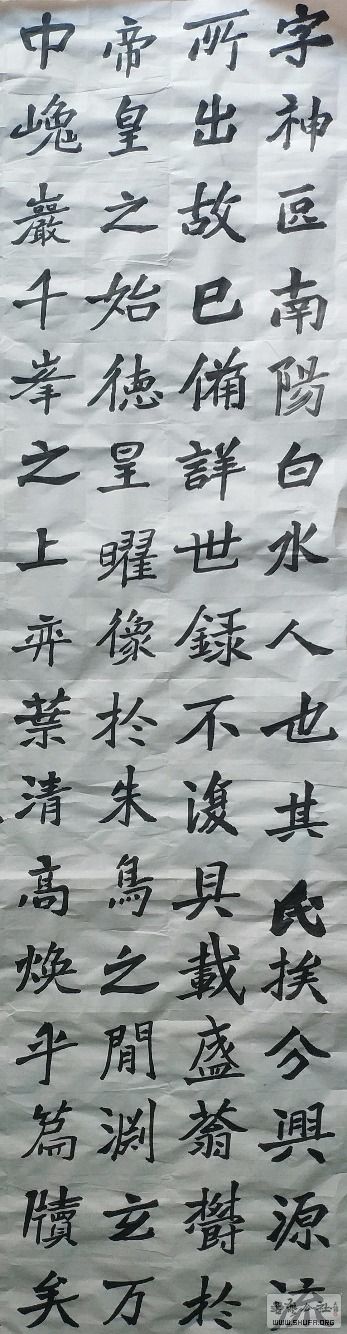 字神叵南陽白水人也其民挨分興源流
所出故已備詳世録不復具載盛蓊鬱於
帝皇之始德皇曜像於朱鳥之閒淵玄万
中巉巖千峯之上弈葉清高煥乎篇牘矣
书法公社
WWW.SHUFA.ORG